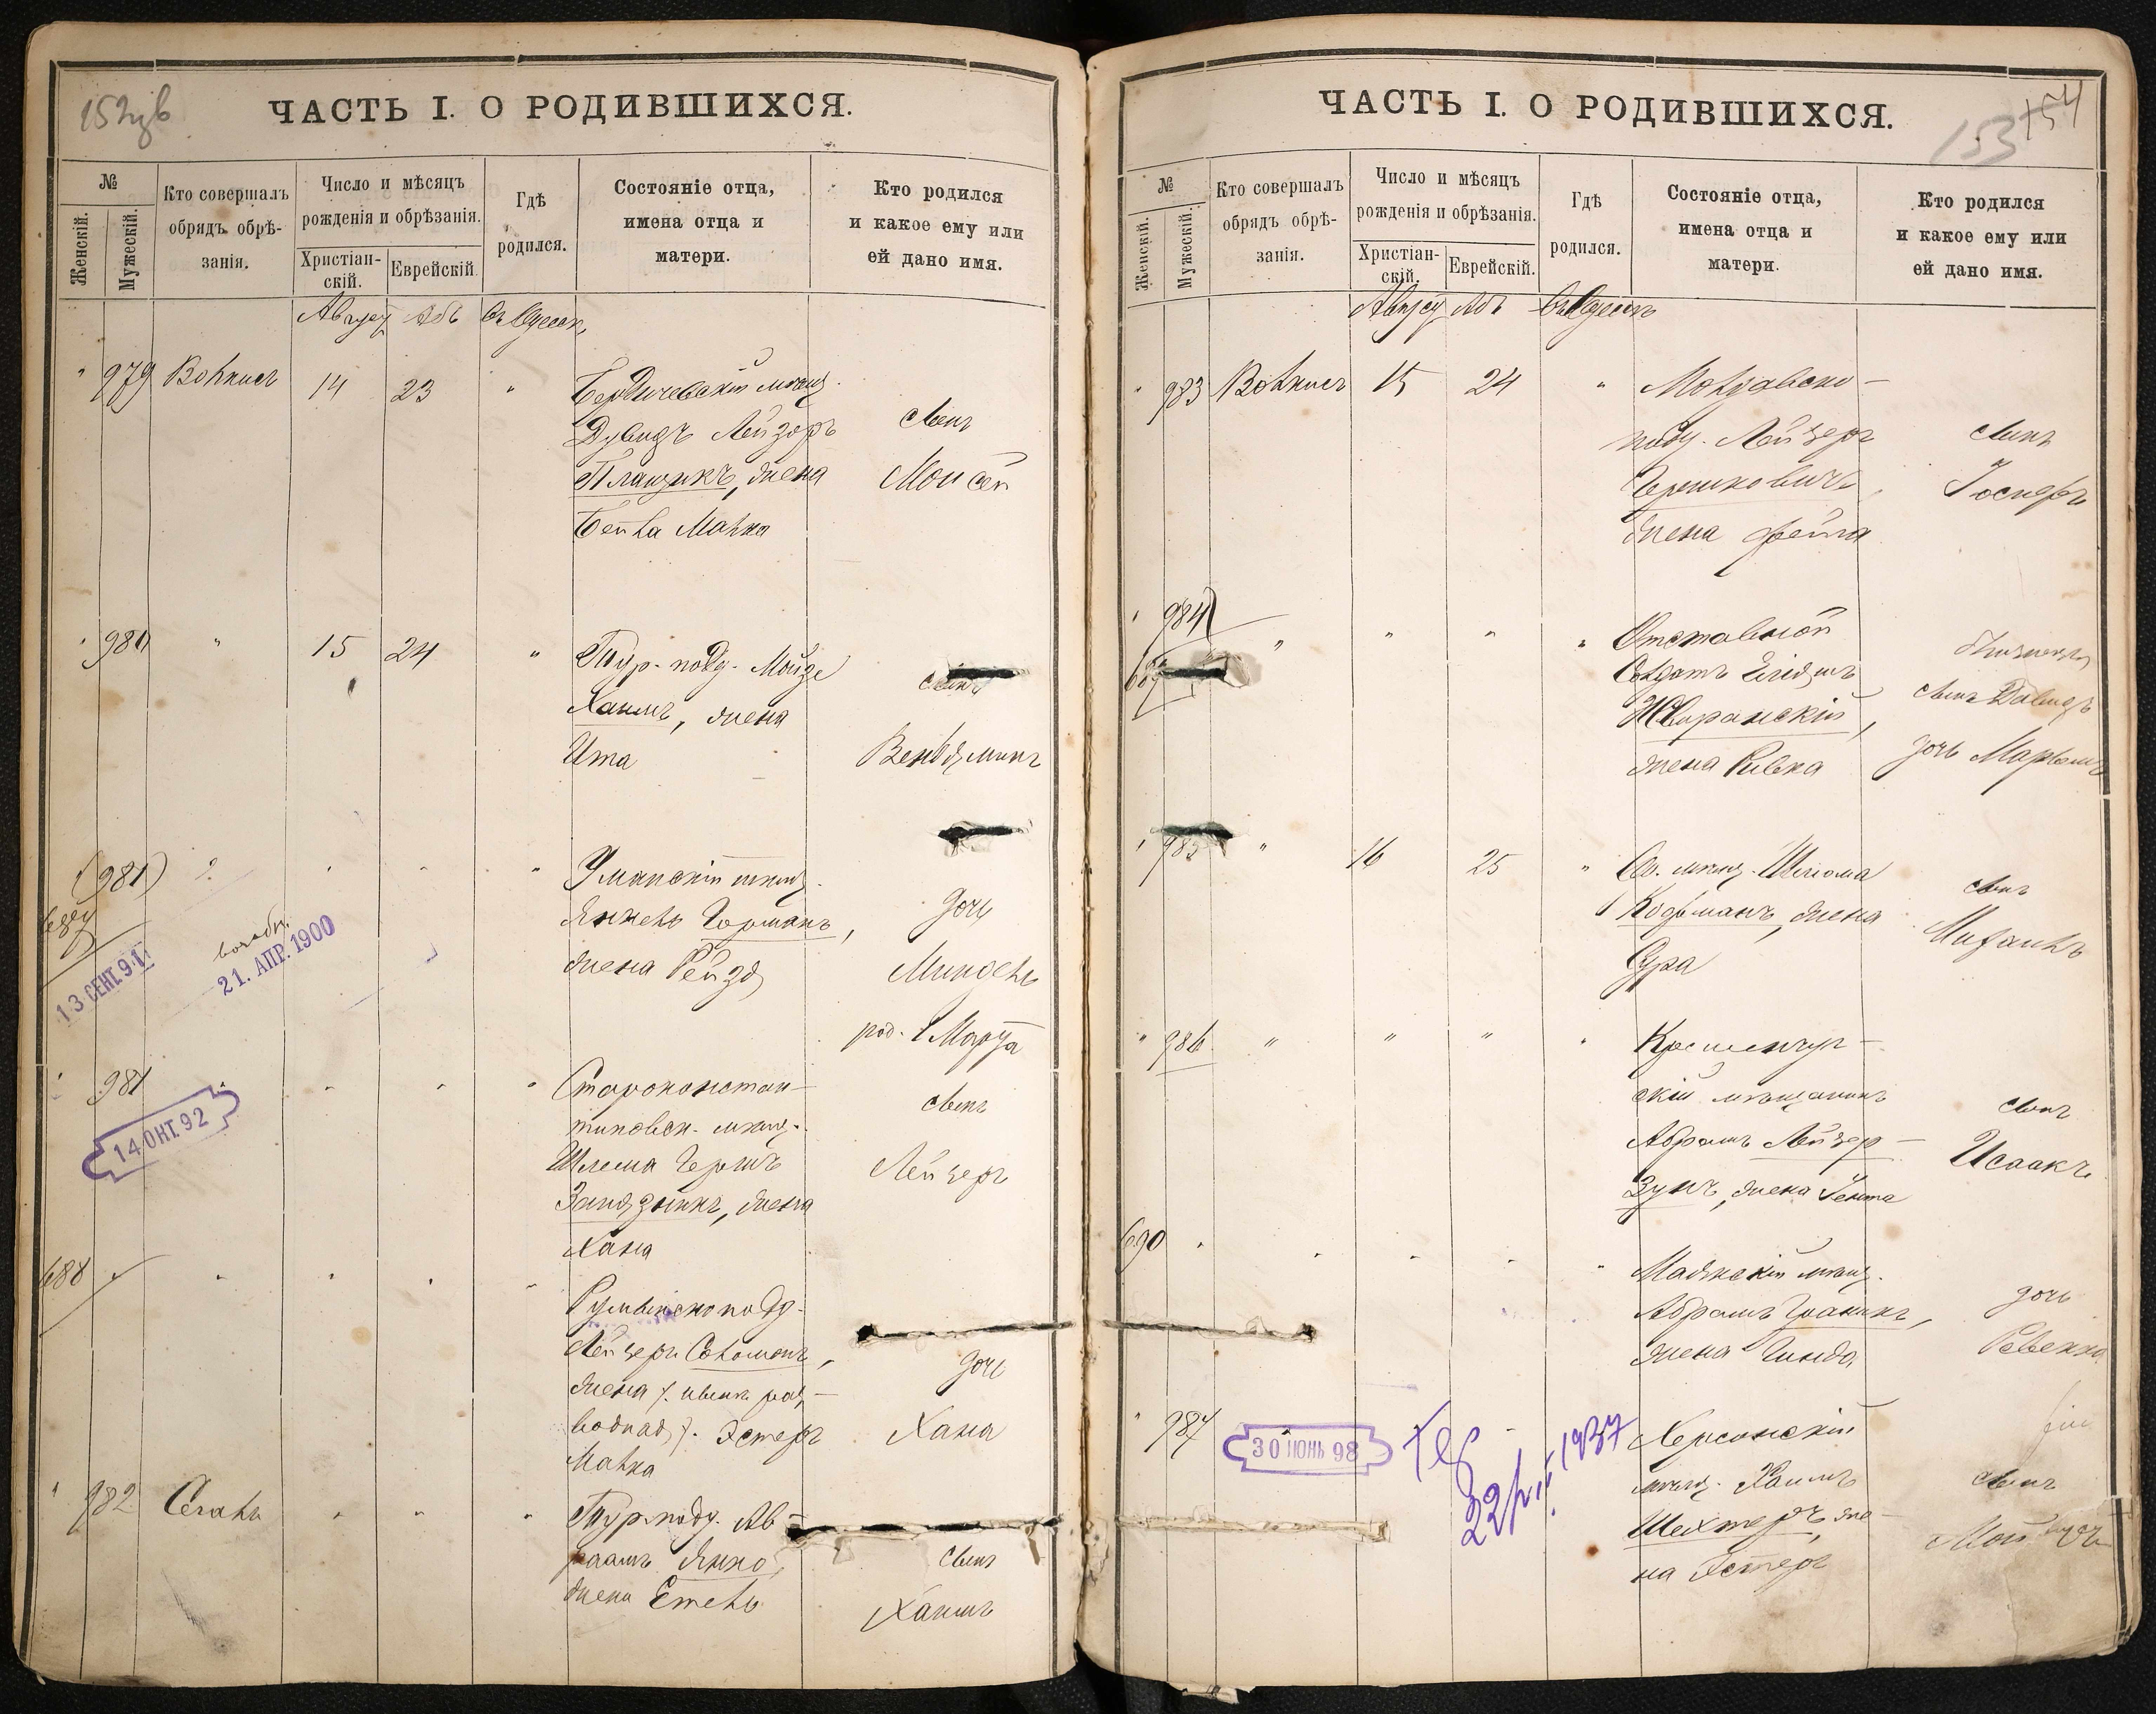 152 об
ЧАСТЬ I. О РОДИВШИХСЯ.
№
Женскій.
Мужескій.
Кто совершалъ
обрядъ обрѣ-
занія.
Число и мѣсяцъ
рожденія и обрѣзанія.
Христіан-
скій.
Еврейскій.
Гдѣ
родился.
Состояніе отца,
имена отца и
матери.
Кто родился
и какое ему или
ей дано имя.
Августъ Абъ Въ Одессѣ
979 14 23 "
Бердичевскій мѣщ.
Дувидъ Лейзоръ
жена
Бейла Малка
сынъ
Мойсей
980 " 15 24 "
Тур. подд. Мойзе
Хаимъ, жена
Ита
сынъ
Веніяминъ
(981) ?
Уманскій мѣщ.
Янкель Горманъ,
жена Рейзя
дочь
Миндель
13 СЕНТ. 91
21. АПР. 1900
981
Староконстан-
тиновск. мѣщ.
Шлема Гершъ
жена
Хана
сынъ
Лейзеръ
14 ОКТ. 92
688
Румынско подд.
Лейзеръ Соломонъ,
жена
Эстеръ
Малка
дочь
Хана
982 Сегалъ
Тур. подд. Ав-
раамъ Янко,
жена Етель
сынъ
Хаимъ
ЧАСТЬ I. О РОДИВШИХСЯ.
153 154
№
Женскій.
Мужескій.
Кто совершалъ
обрядъ обрѣ-
занія.
Число и мѣсяцъ
рожденія и обрѣзанія.
Христіан-
скій.
Еврейскій.
Гдѣ
родился.
Состояніе отца,
имена отца и
матери.
Кто родился
и какое ему или
ей дано имя.
Августъ Абъ Въ Одессѣ
983 15 24 "
Молдавско-
подд. Лейзеръ
Гершковичъ,
жена Фейга
сынъ
Іосифъ
984 " " " "
689
Отставной
Солдатъ
жена Ривка
близнецы
сынъ Давидъ
дочь Марьямъ
985 " 16 25 "
Од. мѣщ. Шлема
Кофманъ, жена
Сура
сынъ
Михаилъ
" 986 " " "
Кременчуг-
скій мѣщанинъ
Абрамъ Лейзер-
Зунъ, жена Гента
сынъ
Исаакъ
690
Маякскій мѣщ.
Абрамъ
жена Гинда
дочь
Ревекка
987
30 ІЮНЬ 98
22/VII 1937
Херсонскій
мѣщ. Хаимъ
Шехтеръ, же-
на Эстеръ
сынъ